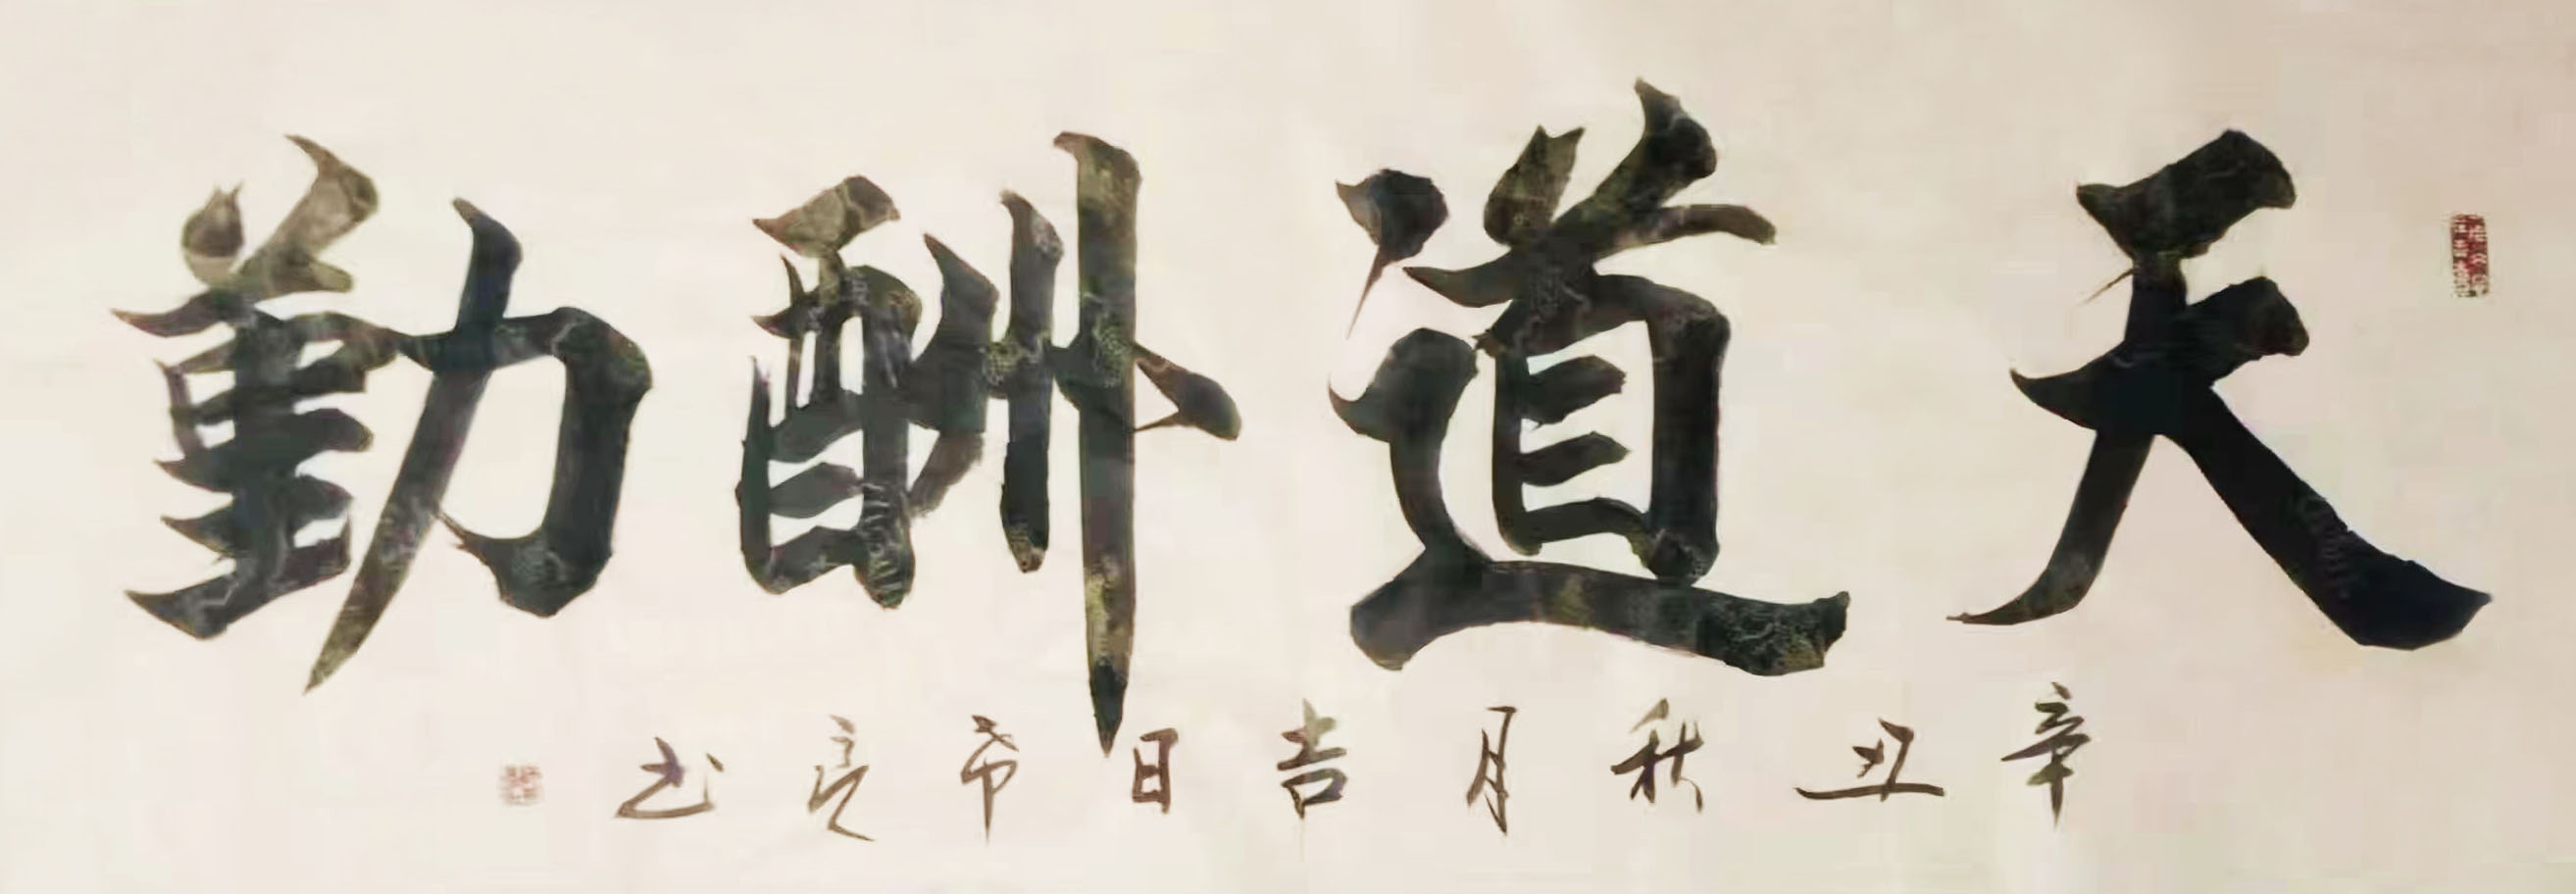 天道酬勤
辛丑秋月吉日希亮书